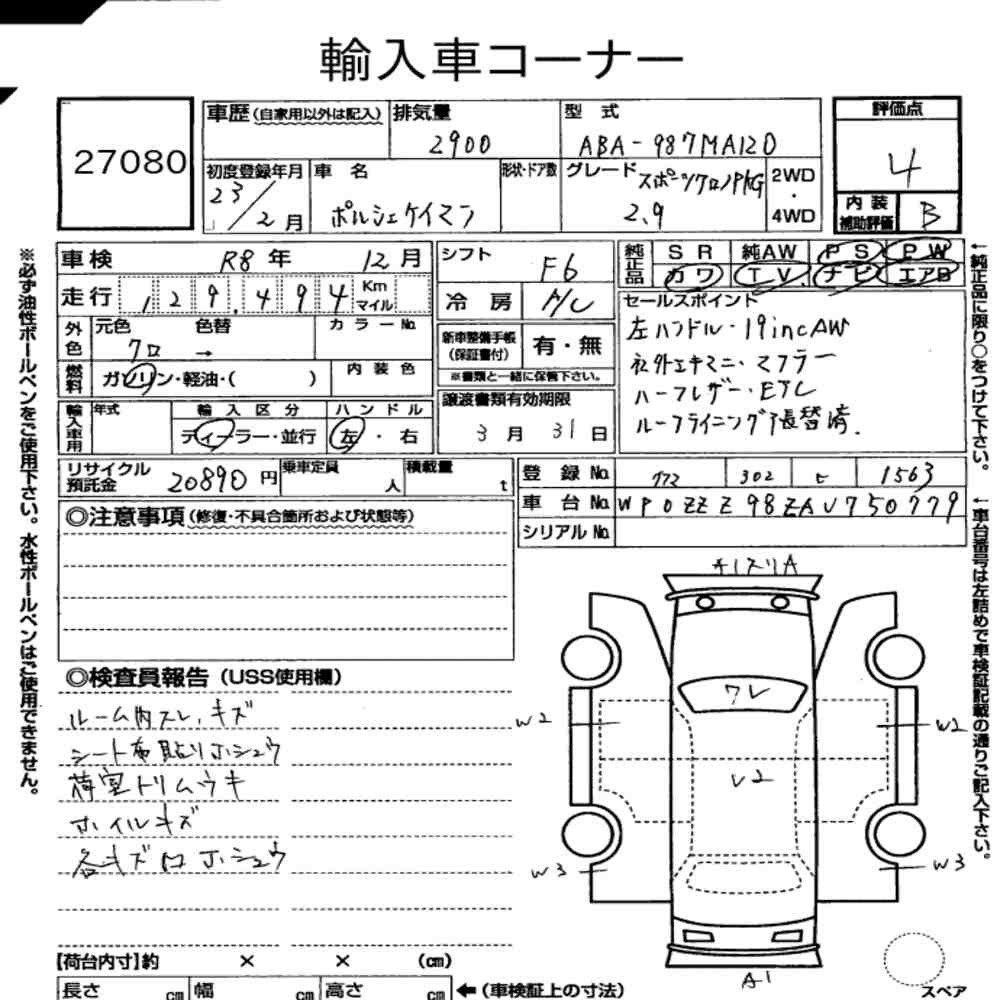 輸入車コーナー
27080
車歴(自家用以外は記入)
排気量
2900
型 式
ABA-987MA12D
評価点
4
内装補助評価
B
初度登録年月
23/2月
車 名
ポルシェケイマン
形状・ドア数
グレード
スポーツクロノPKG
2.9
2WD・4WD
※必ず油性ボールペンをご使用下さい。水性ボールペンはご使用できません。
車検 R8年 12月
走行 129,494 Km マイル
外色
元色 色替
クロ →
カラーNo.
燃料
ガソリン・軽油・( )
内装色
輸入車用
年式
輸入区分
ディーラー・並行
ハンドル
左・右
シフト
F6
冷房
A/C
新車整備手帳(保証書付)
有・無
※書類と一緒に保管下さい。
譲渡書類有効期限
3月31日
純正品
SR 純AW PS PW
カワ TV ナビ エアB
セールスポイント
左ハンドル・19incAW
社外エキマニ・マフラー
ハーフレザー・ETC
ルーフライニング張替済.
←純正品に限り○をつけて下さい。
←車台番号は左詰めで車検証記載の通りご記入下さい。
リサイクル預託金
20890円
乗車定員 人
積載量 t
登録No.
302
1563
車台No.
WP0ZZZ98ZAU750779
シリアルNo.
◎注意事項(修復・不具合箇所および状態等)
◎検査員報告(USS使用欄)
ルーム内スレ、キズ
シート布貼りホシュウ
荷室トリムウキ
ホイルキズ
各キズ口ホシュウ
ワレ
W2
W2
U2
W3
W3
A1
【荷台内寸】約 × × (cm)
長さ cm 幅 cm 高さ cm ←(車検証上の寸法)
スペア